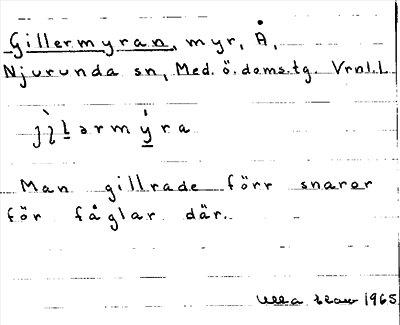 Gillermyran, myr, Å,
Njurunda sn, Med. ö. doms.tg. Vrnl.L
Man gillrade förr snaror
för fåglar där.
Ulla 1965